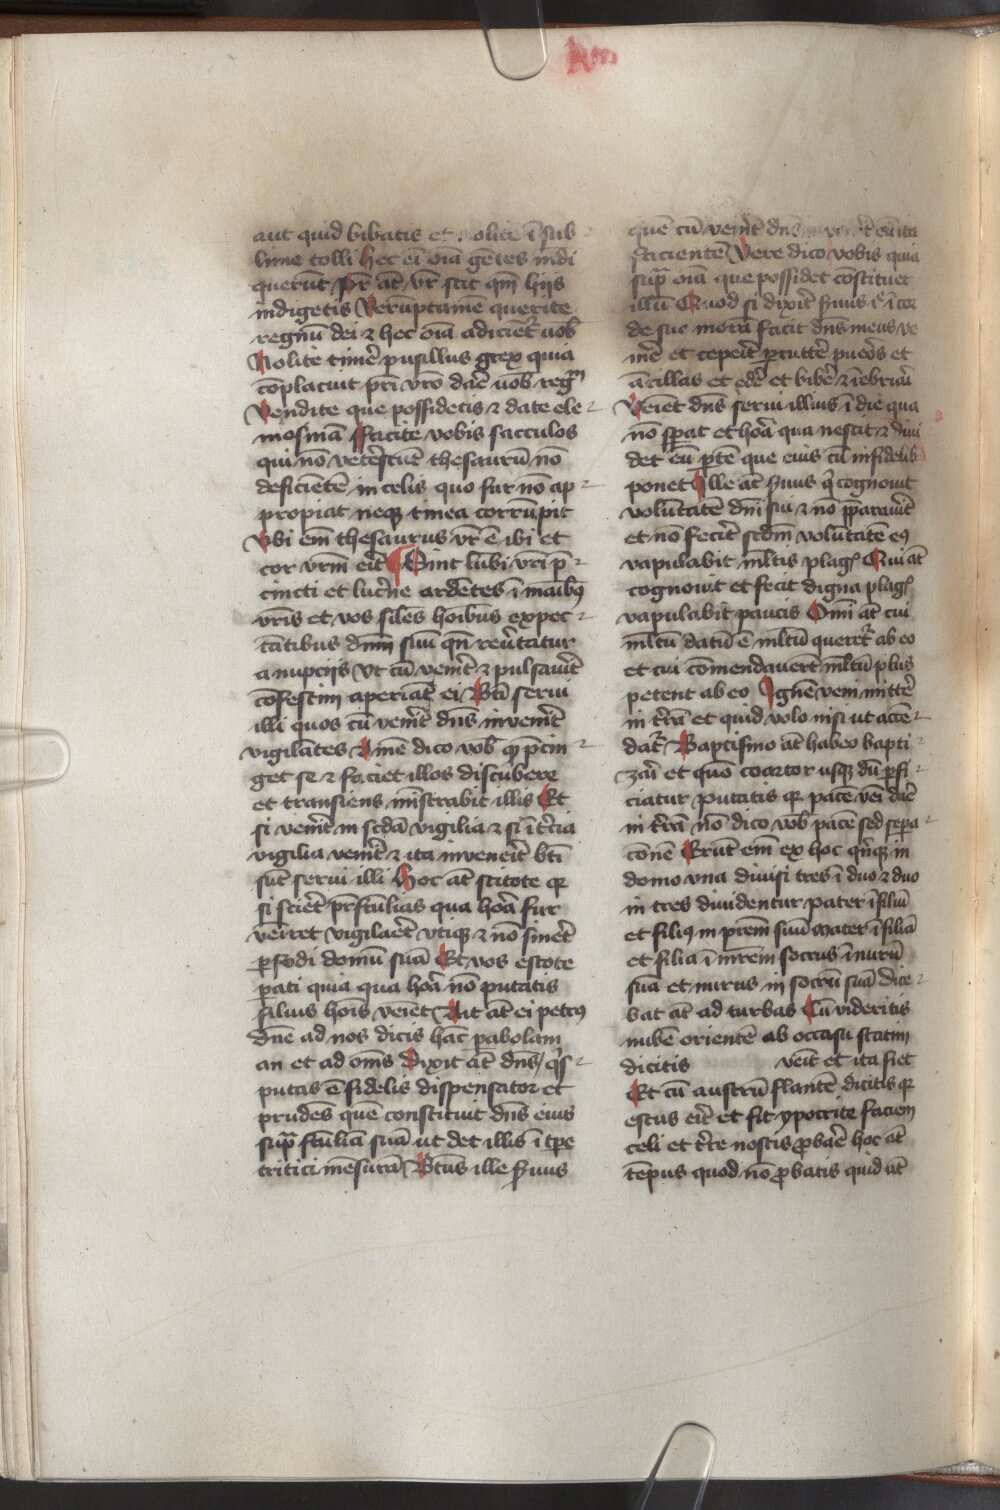 aut quid bibatis et nolite ī sub
lime tolli hec eī oīa gētes mūdi
querūt pr̄ aūt vr̄ scit qm̄ hijs
indigetis Verūptamē querite
regnū dei ⁊ hec oīa adiciēt᷑ uob̄
Nolite timē̓ pusillus grex quia
cōplacuit pr̄i vr̄o daē̓ uob̄ regnū
Vendite que possidetis ⁊ date ele
mosinā ffacite vobis sacculos
qui nō veteēscūt thesaurū nō
deficietē in celis quo fur nō ap
propiat neq̨ tinea corrūpit
Vbi em̄ thesaurus vr̄ ē ibi et
cor vrm̄ eit̓ Sint lūbi vr̄i p̄
cincti et luc̓ne ardētes ī maībꝰ
vr̄is et vos siles̄ hoībus expec
tātibus dnm̄ suū qn̄ reu̓tatur
a nupcijs Vt cū vēnit̓ ⁊ pulsauit̓
cōfestim aperiāt ei Bt̄i serui
illi quos cū vēnit̓ dn̄s inuenit̓
vigilātes Amē dico vob̄ q̨ p̄cin
get se ⁊ faciet illos discūbere
et transiens mīstrabit illis Et
si vēnit̓ in scdā vigilia ⁊ si ī tc̓ia
vigilia vēnit̓ ⁊ ita inuen̄it̓ bt̄i
sūt serui illi Hoc aūt scitote q̨
si sciet̓ pr̄ffuīlias qua hoā̓ fur
veīret vigilaet̓ vtiq̨ ⁊ nō sinet̓
ꝑfodi domū suā Et vos estote
ꝑati quia qua hoā̓ nō putatis
filius hoīs veīet Ait aūt ei petrꝰ
dn̄e ad nos dicis hāc ꝑabolam
an et ad om̄s Dixit aūt dn̄s q̓s
putas ē fidelis dispensator et
prudēs quē constituit dn̄s eius
sup̄ fauīliā suā ut det illis ī tp̄e
tritici mēsurā Bt̄us ille s̓uus
quē cū vēnit̓ dn̄s ita
facientē Vere dico vobis quia
sup̄ oīa que possidet cōstituet
illū Quod si dixit̓ s̓uus ī cor
de suo morā facit dn̄s meus ve
nīe̓ et cepeit̓ ꝑcutte̓ pueo̓s et
ācillas et ede̓ et bibe̓ ⁊ īebriai̓
Veīet dn̄s serui illius ī die qua
nō sꝑat et hoā̓ qua nescit ⁊ diui
det eū ꝑtē que eius cū infidelib̄
ponet Ille aūt s̓uus q̓ cognouit
volūtatē dn̄i sui ⁊ nō p̄parauit̓
et nō fecit̓ scdm̄ volūtatē eꝰ
vapulabit ml̄tis plagꝭ Qui aūt
cognouit et fecit digna plagꝭ
vapulabit paucis Om̄i aūt cui
ml̄tū datū ē ml̄tū querēt᷑ ab eo
et cui cōmendauert̓ ml̄tū plus
petent ab eo Ignē veni mitte̓
in tr̓ā et quid volo nisi ut accē
dat᷑ Baptismo aūt habeo bapti
zai̓ et quō coartor usq̨ dū ꝑfi
ciatur putatis q̨ pacē veī dae̓
in tr̓ā nō dico vob̄ pacē sed seꝑa
cōnē Erūt em̄ ex hoc qn̓q̨ in
domo vna diuisi tres ī duo ⁊ duo
in tres diuidentur pater ī filiū
et filiꝰ in prem̄ suū Mater ī filiā
et filia ī mrem̄ socrus ī nurū
suā et nurus in socrū suā dice
bat aūt ad turbas Cū videritis
nubē orientē ab occasu statim
dicitis veīt et ita fiet
Et cū austrū flantē dicitis q̨
estus eit̓ et fit ypocrite faciem
celi et tr̓e nostis ꝓbae̓ hoc aūt
tēpus quod nō ꝓbatis quid aūt